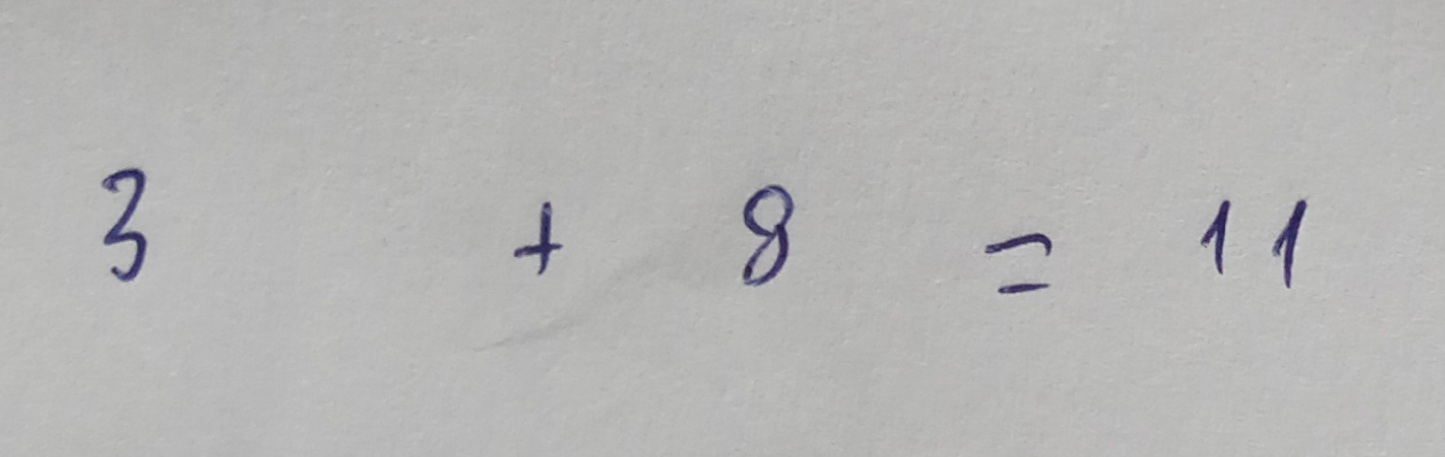 3 + 8 = 11